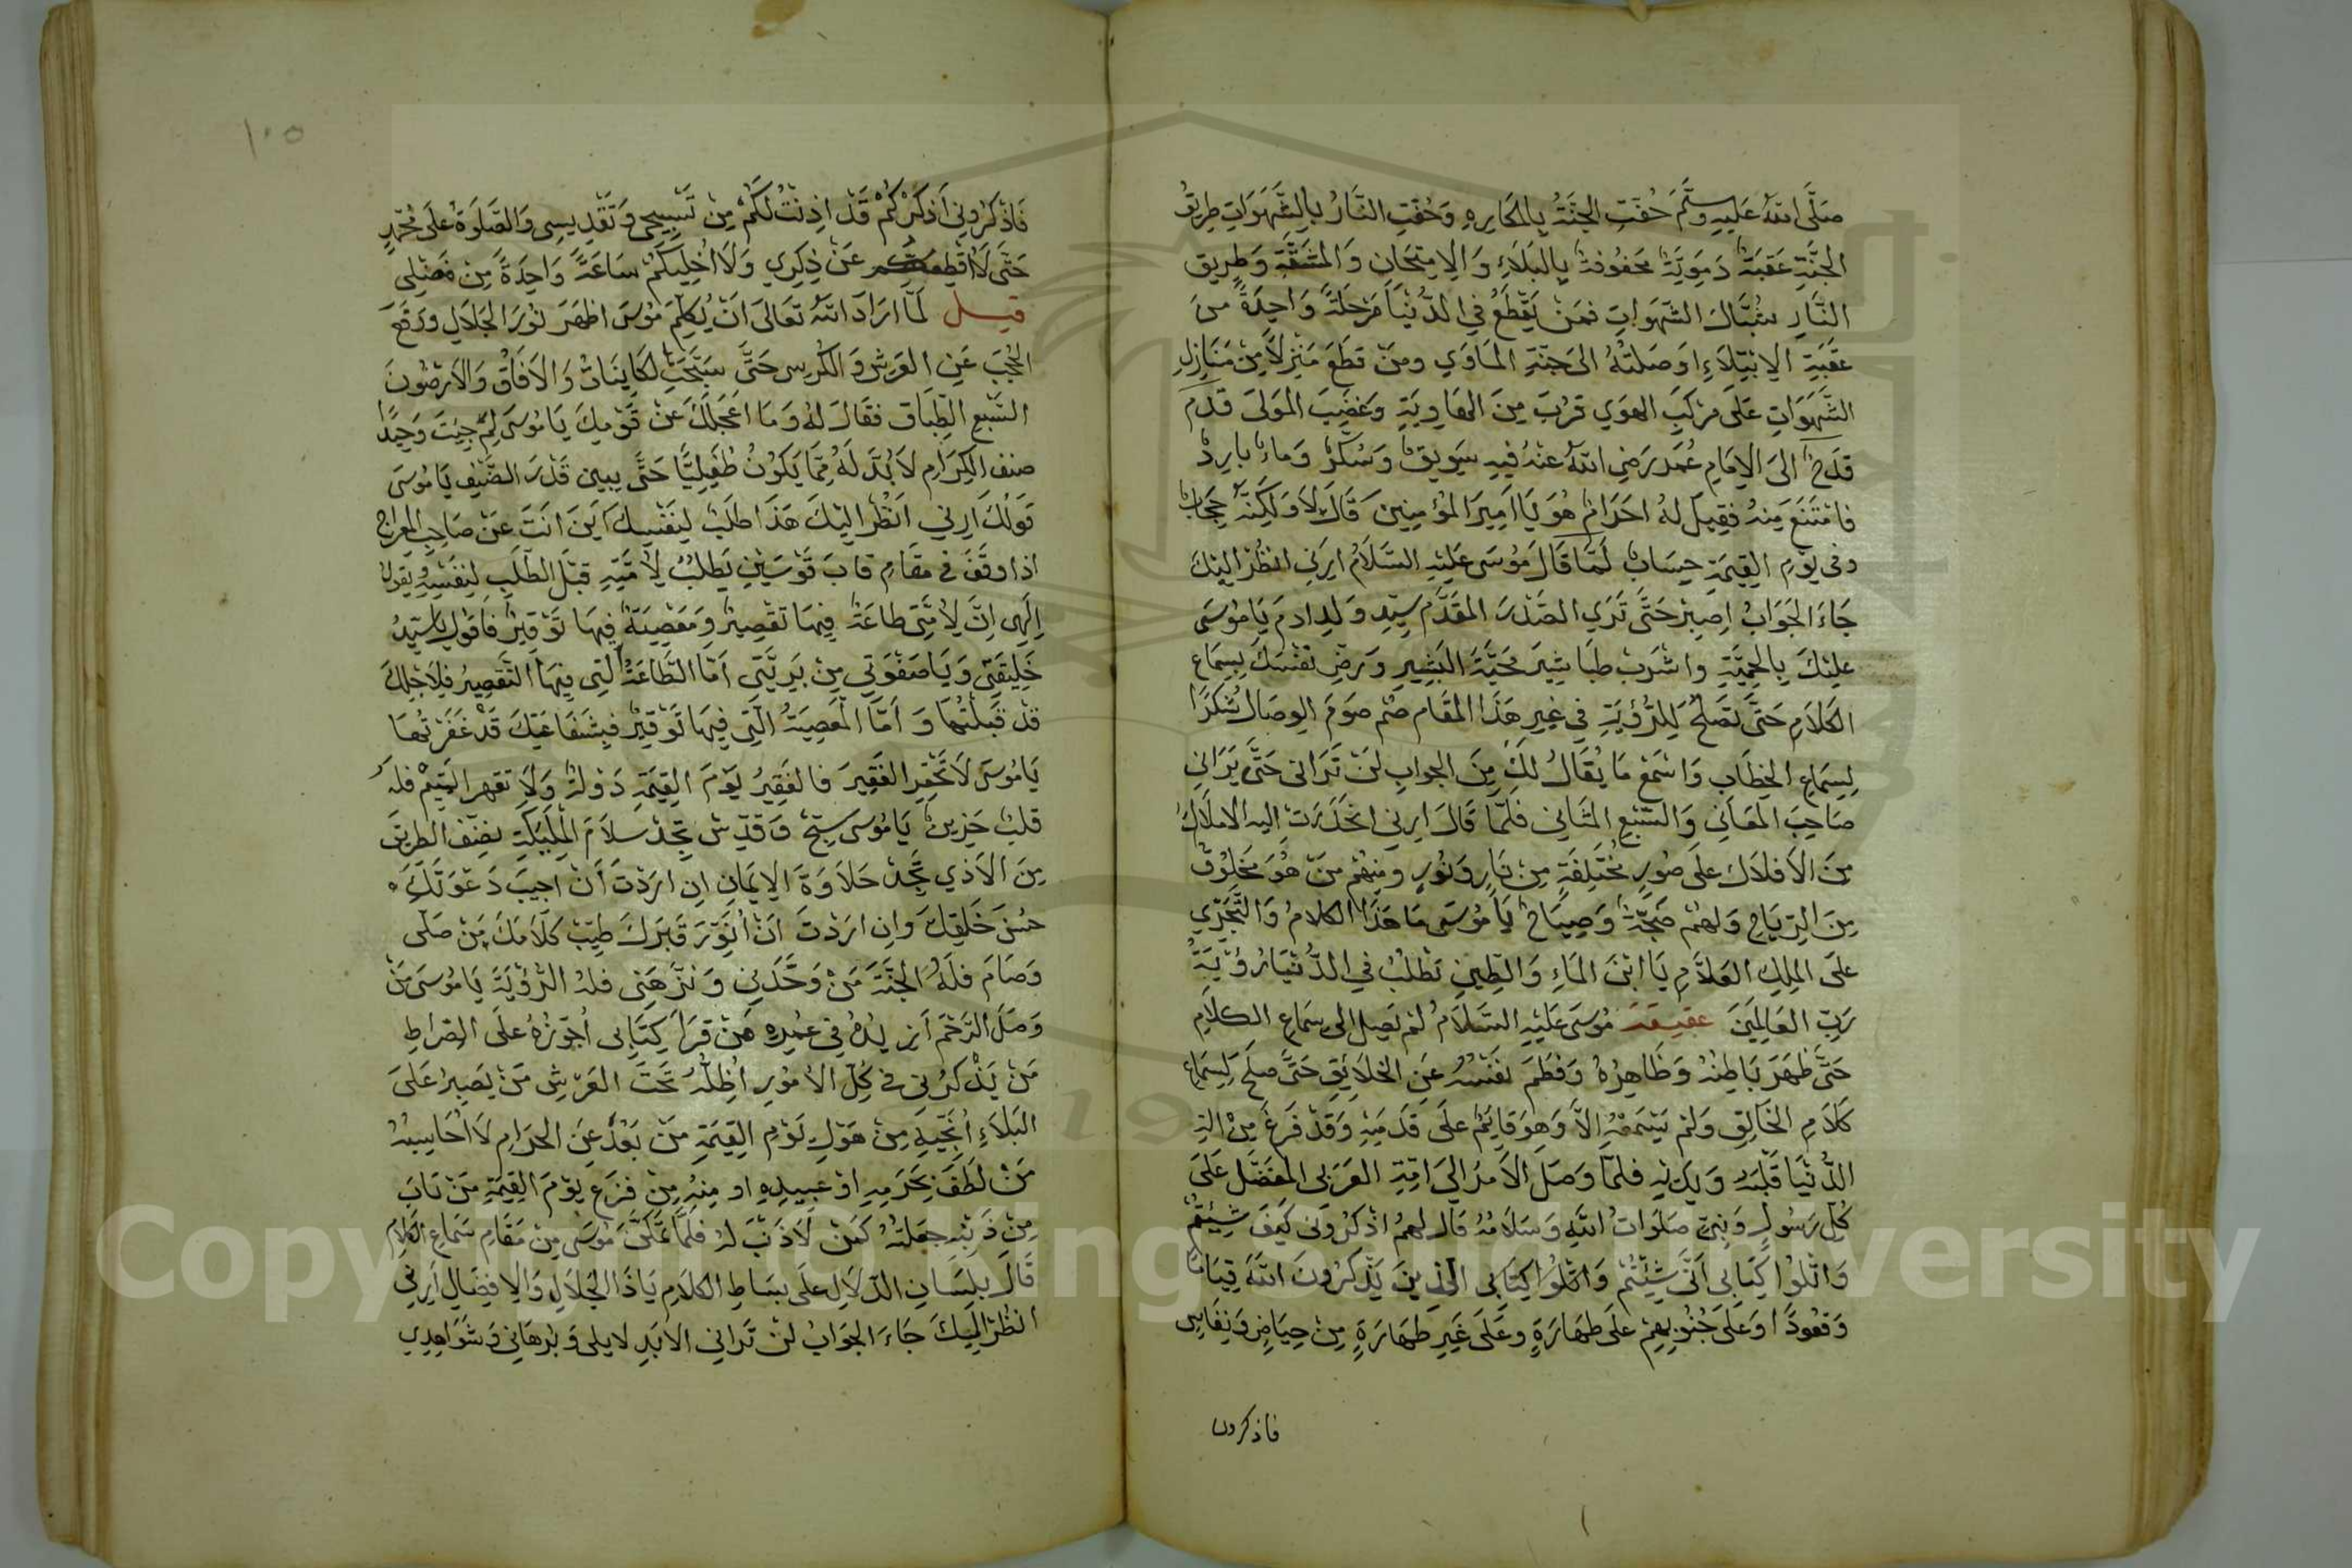 صَلَّى اللهُ عَلَيْهِ وَسَلَّمَ حُفَّتِ الجَنَّةُ بِالمَكَارِهِ وَحُفَّتِ النَّارُ بِالشَّهَوَاتِ طَرِيقُ
الجَنَّةِ عَقَبَةٌ دَمَوِيَّةٌ مَحْفُوفَةٌ بِالبَلَاءِ وَالاِمْتِحَانِ وَالمَشَقَّةِ وَطَرِيقُ
النَّارِ شُبَّاكُ الشَّهَوَاتِ فَمَنْ يَقْطَعُ فِي الدُّنْيَا مَرْحَلَةً وَاحِدَةً مِنْ
عَقَبَةِ الاِبْتِلَاءِ اَوْصَلَتْهُ اِلَى جَنَّةِ المَاوَي وَمَنْ قَطَعَ مَنْزِلًا مِنْ مَنَازِلِ
الشَّهَوَاتِ عَلَى مَرْكَبِ الهَوَي قَرُبَ مِنَ الهَاوِيَةِ وَغَضِبَ المَوْلَى قُدِّمَ
قَدَحٌ اِلَى الاِمَامِ عُمَرَ رَضِيَ اللهُ عَنْهُ فِيهِ سَوِيقٌ وَسُكَّرٌ وَمَاءٌ بَارِدٌ
فَامْتَنَعَ مِنْهُ فَقِيلَ لَهُ اَحَرَامٌ هُوَ يَا اَمِيرَ المُؤْمِنِينَ قَالَ لَا وَلَكِنَّهُ حِجَابٌ
وَفِي يَوْمِ القِيمَةِ حِسَابٌ لَمَّا قَالَ مُوسَى عَلَيْهِ السَّلَامُ اَرِنِي اَنْظُرْ اِلَيْكَ
جَاءَ الجَوَابُ اِصْبِرْ حَتَّى تَرَي الصَّدْرَ المُقَدَّمَ سَيِّدِ وَلَدِ ادَمَ يَا مُوسَى
عَلَيْكَ بِالحِمْيَةِ وَاشْرَبْ طَبَاشِيرَ مَحَبَّةَ البَشِيرِ وَرَضِّ نَفْسَكَ بِسِمَاعِ
الكَلَامِ حَتَّى تَصْلُحُ لِلرُّؤْيَةِ فِي غَيْرِ هَذَا المَقَامِ صُمْ صَوْمَ الوِصَالِ شُكْرًا
لِسِمَاعِ الخِطَابِ وَاسْمَعْ مَا يُقَالُ لَكَ مِنَ الجَوَابِ لَنْ تَرَانِي حَتَّى يَرَانِي
صَاحِبَ المَعَانِي وَالسَّبْعِ المَثَانِي فَلَمَّا قَالَ اَرِنِي انْحَدَرَتْ اِلَيْهِ الاَمْلَاكُ
مِنَ الاَفْلَاكِ عَلَى صُوَرٍ مُخْتَلِفَةٍ مِنْ نَارٍ وَنُورٍ وَمِنْهُمْ مَنْ هُوَ مَخْلُوقٌ
مِنَ الرِّيَاحِ وَلَهُمْ ضَجَّةٌ وَصِيَاحٌ يَا مُوسَى مَا هَذَا الكَلَامُ وَالتَّجَرِّي
عَلَى المَلِكِ العَلَّامِ يَا ابْنَ المَاءِ وَالطِّينِ تَطْلُبُ فِي الدُّنْيَا رُؤْيَةَ
رَبِّ العَالَمِينَ مُوسَى عَلَيْهِ السَّلَامُ لَمْ يَصِلْ اِلَى سَمَاعِ الكَلَامِ
حَتَّى طَهَرَ بَاطِنُهُ وَظَاهِرُهُ وَفَطَمَ نَفْسَهُ عَنِ الخَلَائِقِ حَتَّى صَلَحَ لِسِمَاعِ
كَلَامِ الخَالِقِ وَلَمْ يَسْمَعْهُ اِلَّا وَهُوَ قَائِمٌ عَلَى قَدَمَيْهِ وَقَدْ فَرَغَ مِنْ
الدُّنْيَا قَلْبُهُ وَيَدَيْهِ فَلَمَّا وَصَلَ الاَمْرُ اِلَى اُمَّةِ العَرَبِي المُفَضَّلِ عَلَى
كُلِّ رَسُولٍ وَنَبِيٍّ صَلَوَاتُ اللهِ وَسَلَامُهُ قَالَ لَهُمُ اذْكُرُونِي كَيْفَ شِيْتُمْ
وَاتْلُوا كِتَابِي اَنَّى شِئْتُمْ وَاتْلُوا كِتَابِي الَّذِينَ يَذْكُرُونَ اللهَ قِيَامًا
وَقُعُودًا وَعَلَى جُنُوبِهِمْ عَلَى طَهَارَةٍ وَعَلَى غَيْرِ طَهَارَةٍ مِنْ حِيَاضٍ وَنِفَاسٍ
فاذكروني
١٠٥
فَاذْكُرُونِي اَذْكُرْكُمْ قَدْ اَذِنْتُ لَكُمْ مِنْ تَسْبِيحِي وَتَقْدِيسِي وَالصَّلَوةُ عَلَى مُحَمَّدٍ
حَتَّى لَا اَقْطَعَكُمْ عَنْ ذِكْرِي وَلَا اُخْلِيَكُمْ سَاعَةً وَاحِدَةً مِنْ فَضْلِي
قيل لَمَّا اَرَادَ اللهُ تَعَالَى اَنْ يُكَلِّمَ مُوسَى اَظْهَرَ نُورَ الجَلَالِ وَرَفَعَ
الحُجُبَ عَنِ العَرْشِ وَالكُرْسِي حَتَّى سَبَّحَتْ الكَايِنَاتُ وَالاَفَاقُ وَالاَرَضُونَ
السَّبْعِ الطِّبَاقِ فَقَالَ لَهُ وَمَا اَعْجَلَكَ عَنْ قَوْمِكَ يَا مُوسَى لِمَ جِيْتَ وَحِيدًا
ضَيْفُ الكِرَامِ لَا بُدَّ لَهُ مِمَّا يَكُونُ طُفَيْلِيًّا حَتَّى يَبِينَ قَدْرَ الضَّيْفِ يَا مُوسَى
قَوْلُكَ اَرِنِي اَنْظُرْ اِلَيْكَ هَذَا طَلَبٌ لِنَفْسِكَ اَيْنَ اَنْتَ عَنْ صَاحِبِ المِعْرَاجِ
اِذَا وَقَفَ فِي مَقَامِ قَابَ قَوْسَيْنِ يَطْلُبُ لِاُمَّتِهِ قَبْلَ الطَّلَبِ لِنَفْسِهِ وَيَقُولُ
اِلَهِي اِنَّ لِاُمَّتِي طَاعَةٌ فِيهَا تَقْصِيرٌ وَمَعْصِيَةٌ فِيهَا تَوْقِيرٌ فَاَقُولُ يَا سَيِّدَ
خَلِيقَتِي وَيَا صَفْوَتِي مِنْ بَرِيَّتِي اَمَّا الطَّاعَةُ الَّتِي فِيهَا التَّقْصِيرُ فَلِاَجْلِكَ
قَدْ قَبِلْتُهَا وَاَمَّا المَعْصِيَةُ الَّتِي فِيهَا تَوْقِيرٌ فَبِشَفَاعَتِكَ قَدْ غَفَرْتُهَا
يَا مُوسَى لَا تَحْقِرِ الفَقِيرَ فَالفَقِيرُ يَوْمَ القِيمَةِ دَوْلَةٌ وَلَا تَقْهَرِ اليَتِيمْ فَلَهُ
قَلْبٌ حَزِينٌ يَا مُوسَى سَبِّحْ وَقَدِّسْ تَجِدْ سَلَامَ المَلَيِكَةِ نَضِّفِ الطَّرِيقَ
مِنَ الاَذَي تَجِدْ حَلَاوَةَ الاِيمَانِ اِنْ اَرَدْتَ اَنْ اُجِيبَ دَعْوَتَكَ
حَسِّنْ خُلُقَكَ وَاِنْ اَرَدْتَ اَنْ اُنَوِّرَ قَبْرَكَ طَيِّبْ كَلَامَكَ مَنْ صَلَّى
وَصَامَ فَلَهُ الجَنَّةَ مَنْ وَحَّدَنِي وَنَزَّهَنِي فَلَهُ الرُّؤْيَةَ يَا مُوسَى مَنْ
وَصَلَ الرَّحْمَ اَزِيدُهُ فِي عُمْرِهِ مَنْ قَرَاَ كِتَابِي اُجَوِّزُهُ عَلَى الصِّرَاطِ
مَنْ يَذْكُرْنِي فِي كُلِّ الاُمُورِ اُظِلُّهُ تَحْتَ العَرْشِ مَنْ يَصْبِرُ عَلَى
البَلَاءِ اُنَجِّيهِ مِنْ هَوْلِ يَوْمِ القِيمَةِ مَنْ بَعُدَ عَنِ الحَرَامِ لَا اُحَاسِبُهُ
مَنْ لَطَفَ بِحَرَمِهِ اَوْ عَبِيدِهِ مِنْ فَزَعِ يَوْمَ القِيمَةِ مَنْ تَابَ
مِنْ ذَنْبِهِ جَعَلْتُهُ كَمَنْ لَا ذَنْبَ لَهُ فَلَمَّا تَمَكَّنَ مُوسَى مِنْ مَقَامِ سَمَاعِ الكَلَامِ
قَالَ بِلِسَانِ الدَّلَالِ عَلَى بِسَاطِ الكَلَامِ يَا ذَا الجَلَالِ وَالاِفْضَالِ اَرِنِي
اَنْظُرْ اِلَيْكَ جَاءَ الجَوَابُ لَنْ تَرَانِي الاَبَدِ وَبُرْهَانِي وَشَوَاهِدِي
Copyright © King Saud University